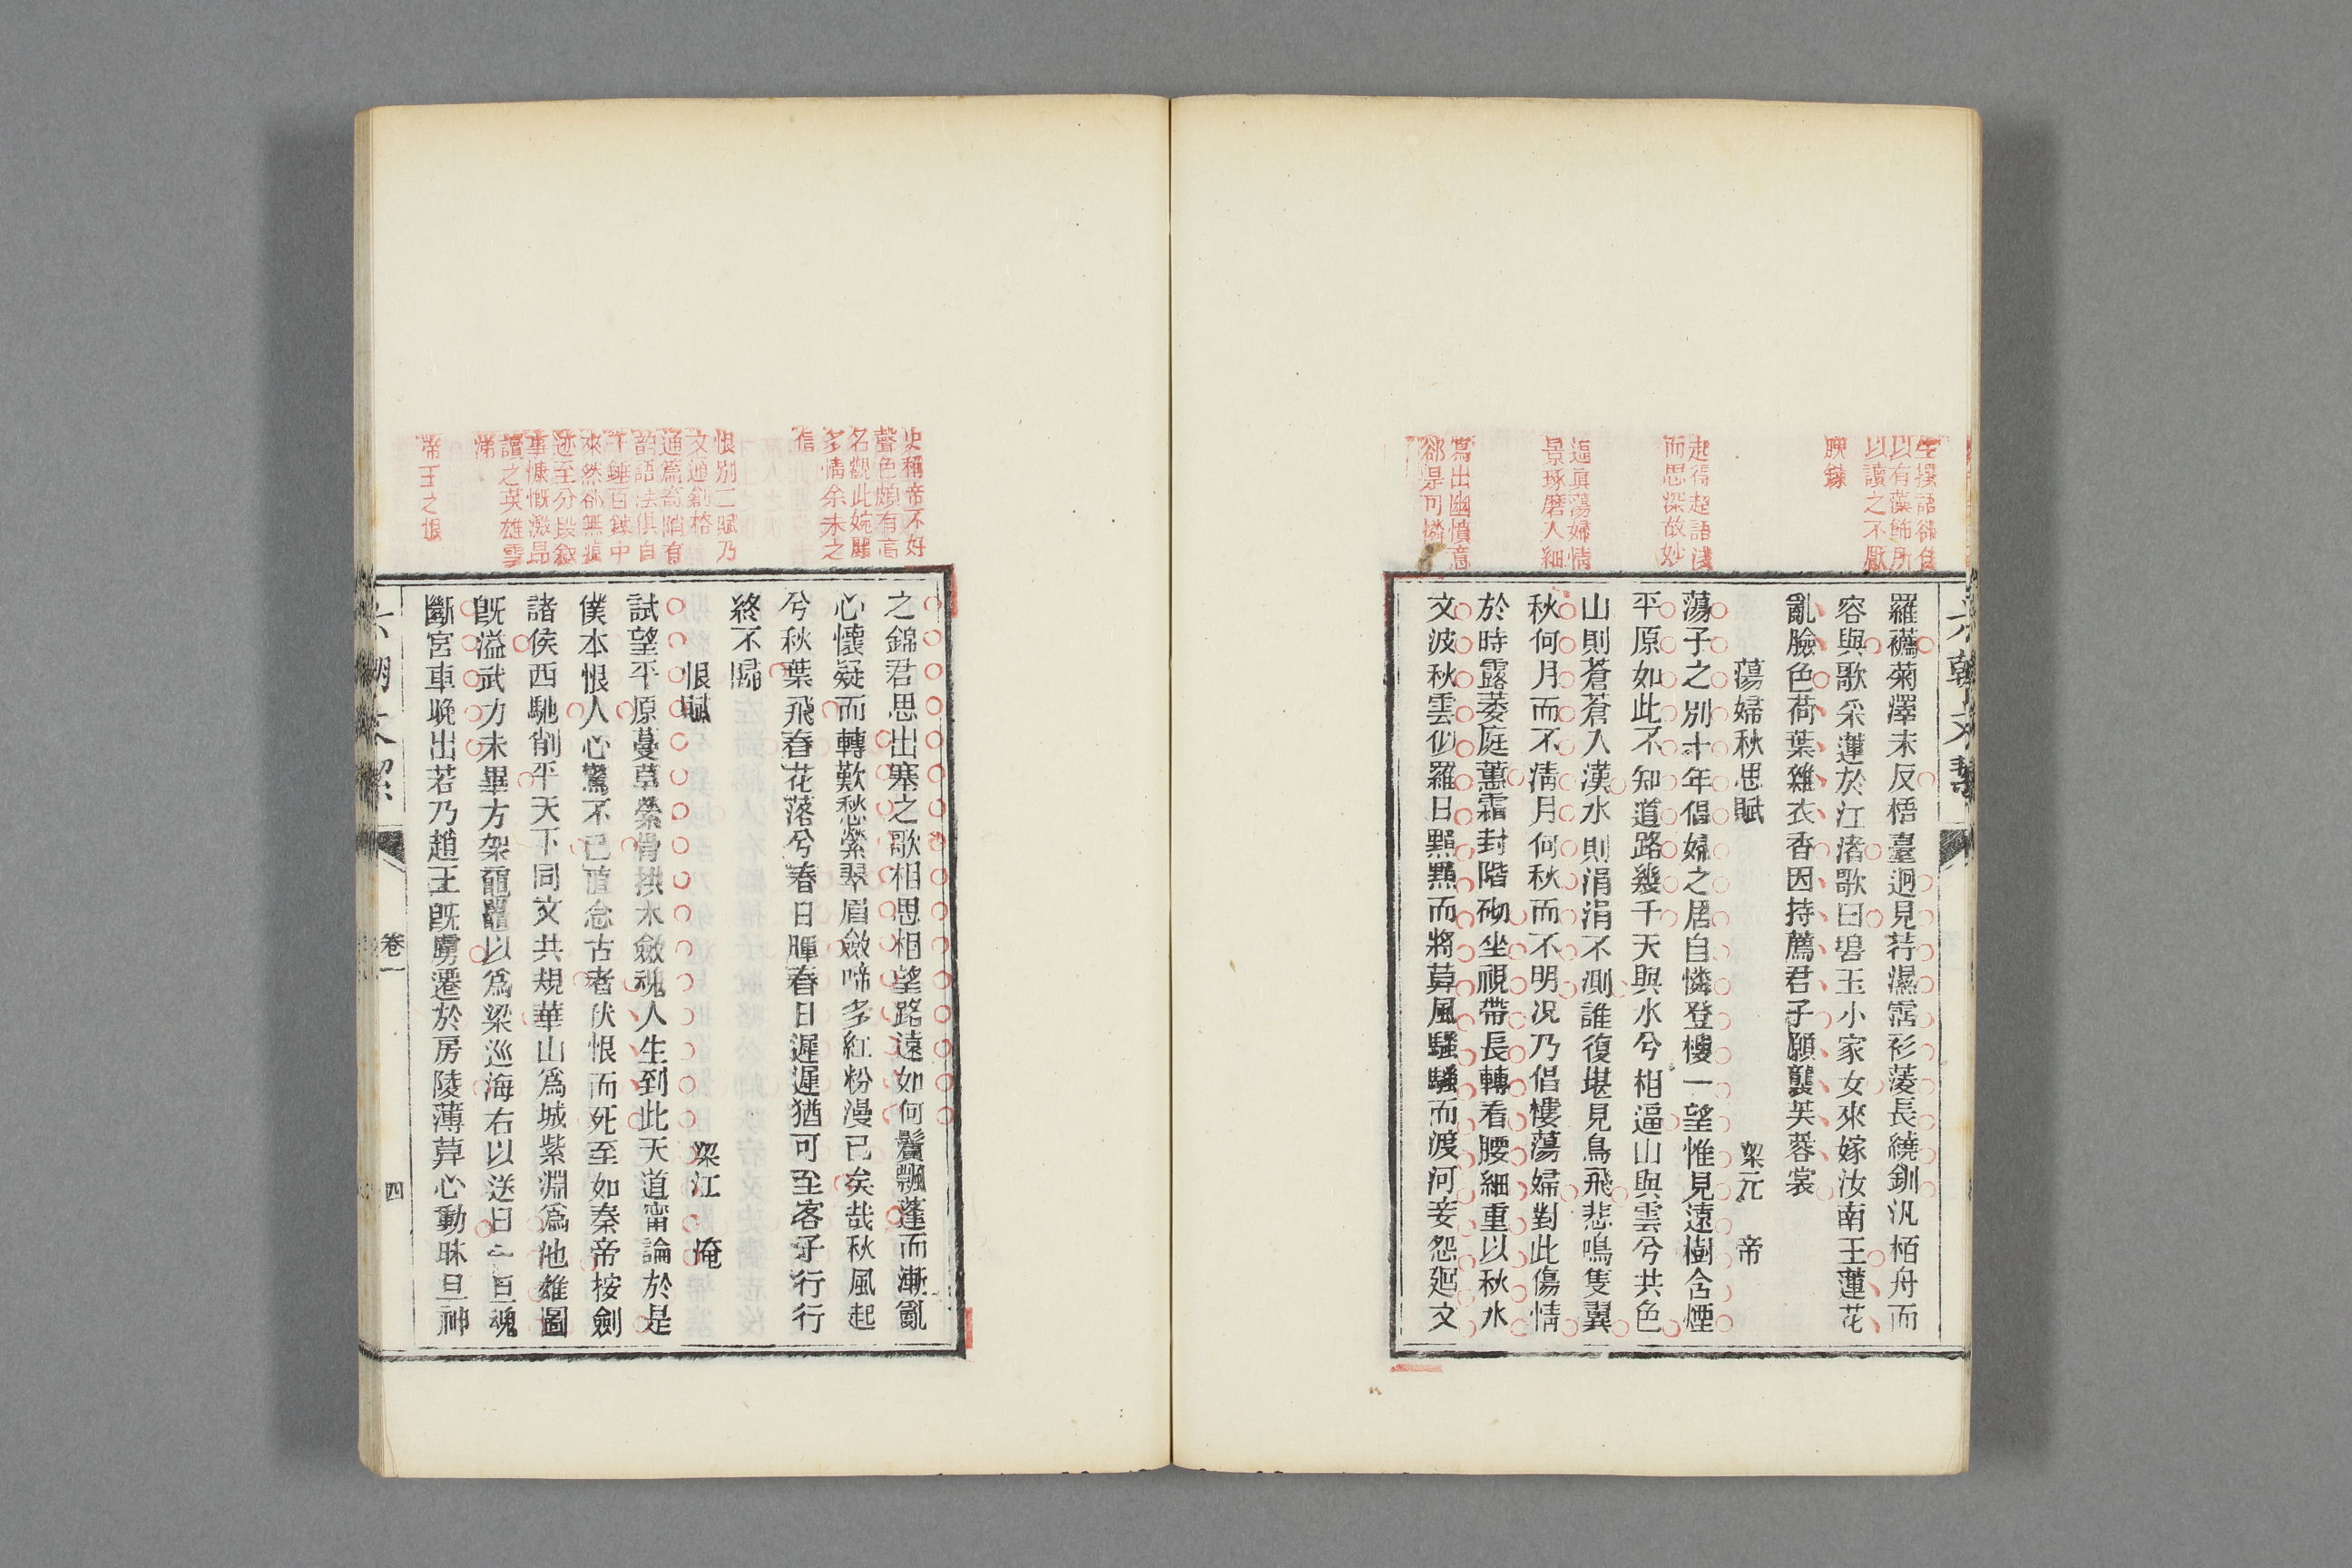 生撰語卻自
以有藻飾所
以讀之不厭
腴鍊
起得超語淺
而思深故妙
逼眞蕩婦情
景琢磨入細
寫出幽憤意
卻是可憐
羅襪菊澤未反梧臺迥見荇濕霑衫菱長繞釧汎栢舟而
容與歌采蓮於江渚歌曰碧玉小家女來嫁汝南王蓮花
亂臉色荷葉雜衣香因持薦君子願襲芙蓉裳
蕩婦秋思賦 梁元帝
蕩子之別十年倡婦之居自憐登樓一望惟見遠樹含煙
平原如此不知道路幾千天與水兮相逼山與雲兮共色
山則蒼蒼入漢水則涓涓不測誰復堪見鳥飛悲鳴隻翼
秋何月而不淸月何秋而不明况乃倡樓蕩婦對此傷情
於時露萎庭蕙霜封階砌坐視帶長轉看腰細重以秋水
文波秋雲似羅日黯黯而將莫風騷騷而渡河妾怨廻文
史稱帝不好
聲色頗有高
名觀此婉麗
多情余未之
信
恨別二賦乃
文通創格
通篇奇峭有
韵語法俱自
千錘百鍊中
來然卻無痕
迹至分段敘
事慷慨激昂
讀之英雄雪
涕
帝王之恨
之錦君思出塞之歌相思相望路遠如何鬢飄蓬而漸亂
心懷疑而轉歎愁縈翠眉斂啼多紅粉漫已矣哉秋風起
兮秋葉飛春花落兮春日暉春日遲遲猶可至客子行行
終不歸
恨賦 梁江淹
試望平原蔓草縈骨拱木斂魂人生到此天道甯論於是
僕本恨人心驚不已直念古者伏恨而死至如秦帝按劍
諸侯西馳削平天下同文共規華山爲城紫淵爲池雄圖
旣溢武力未畢方架黿鼉以爲梁巡海右以送日一旦魂
斷宮車晚出若乃趙王旣虜遷於房陵薄暮心動昧旦神
六朝文絜 卷一 四